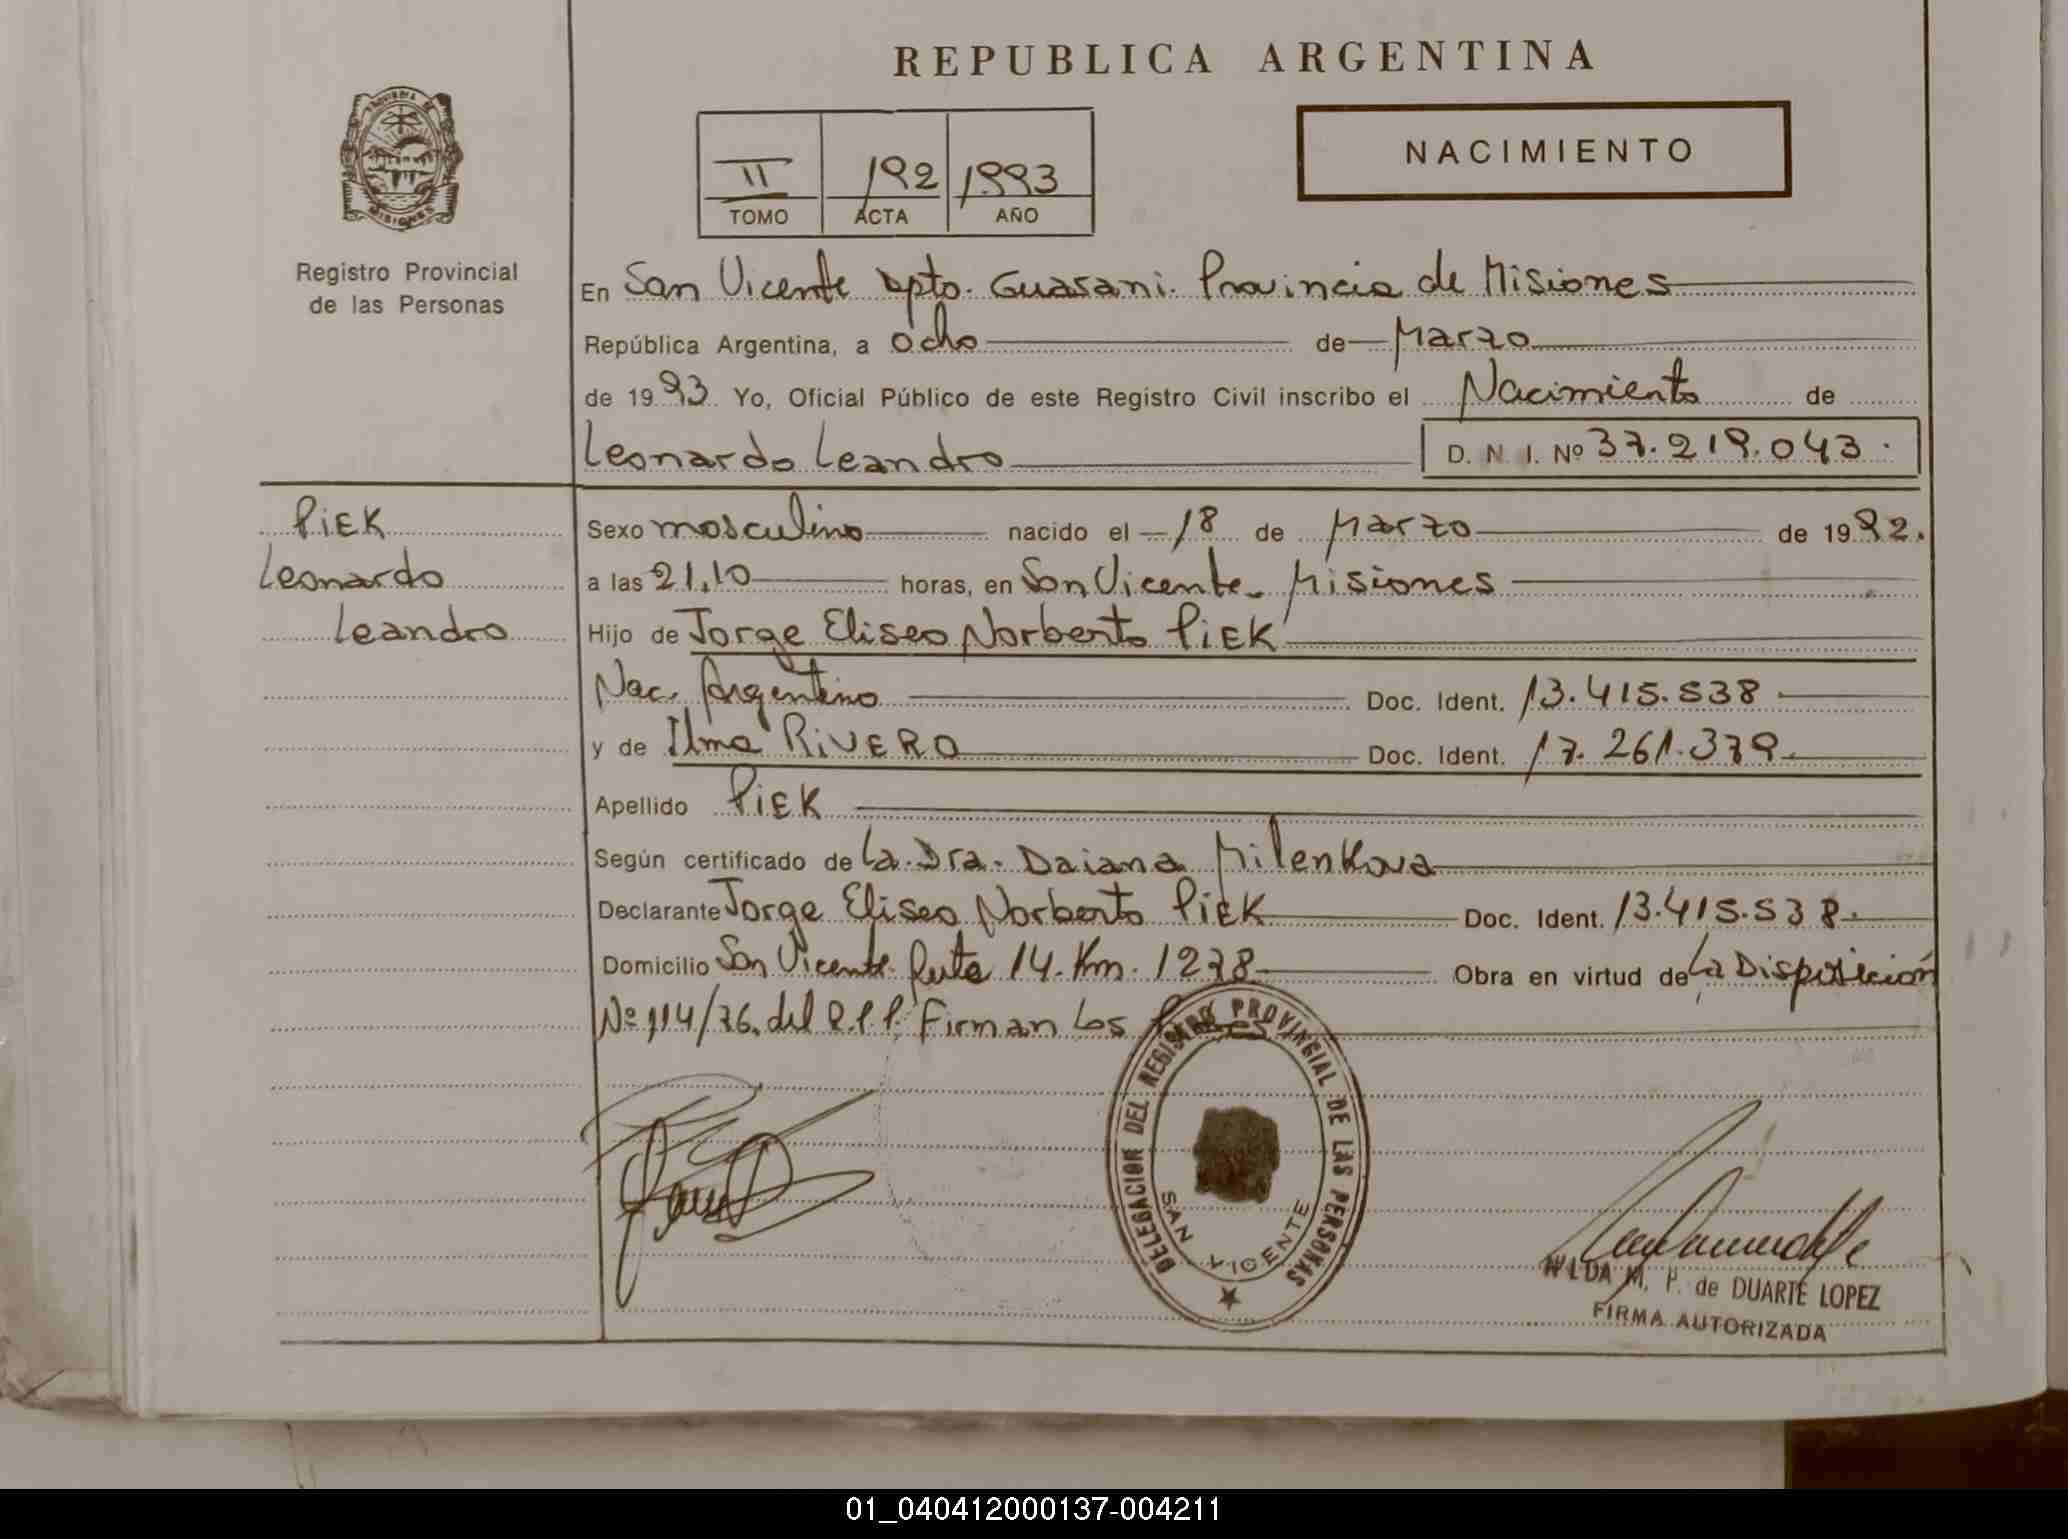 REPUBLICA ARGENTINA
II 192 1993
TOMO ACTA AÑO
NACIMIENTO
PROVINCIA DE
MISIONES
Registro Provincial
de las Personas
En San Vicente Dpto. Guarani. Provincia de Misiones
República Argentina, a ocho de Marzo
de 1993 Yo, Oficial Público de este Registro Civil inscribo el Nacimiento de
Leonardo Leandro D. N. I. Nº 37.219.043.
PiEK
Leonardo
Leandro
Sexo masculino nacido el 18 de Marzo de 1992.
a las 21,10 horas, en San Vicente - Misiones
Hijo de Jorge Eliseo Norberto PiEK
Nac. Argentino Doc. Ident. 13.415.538
y de Ilma RiVERO Doc. Ident. 17.261.379
Apellido PiEK
Según certificado de La Dra. Daiana Milenkova
Declarante Jorge Eliseo Norberto PiEK Doc. Ident. 13.415.538.
Domicilio San Vicente Ruta 14. Km. 1278 Obra en virtud de La Disposición
Nº 114/76. del R.P.P. Firman Los Padres
DELEGACION DEL REGISTRO PROVINCIAL DE LAS PERSONAS
SAN VICENTE
M. P. de DUARTE LOPEZ
FIRMA AUTORIZADA
01_040412000137-004211